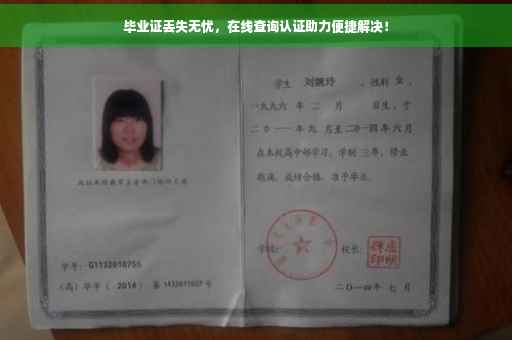 毕业证丢失无忧，在线查询认证助力便捷解决！
学生 刘婉玲 ，性别 女 ，
一九九六 年 二 月 日生，于
二〇一一年 九 月至 二〇一四年 六 月
在本校高中部学习，学制 三年，修业
期满，成绩合格，准予毕业。
学号：G1132010755
（高）毕字（ 2014 ）第 1432011027 号
学校：
校长：
二〇一四年 七 月